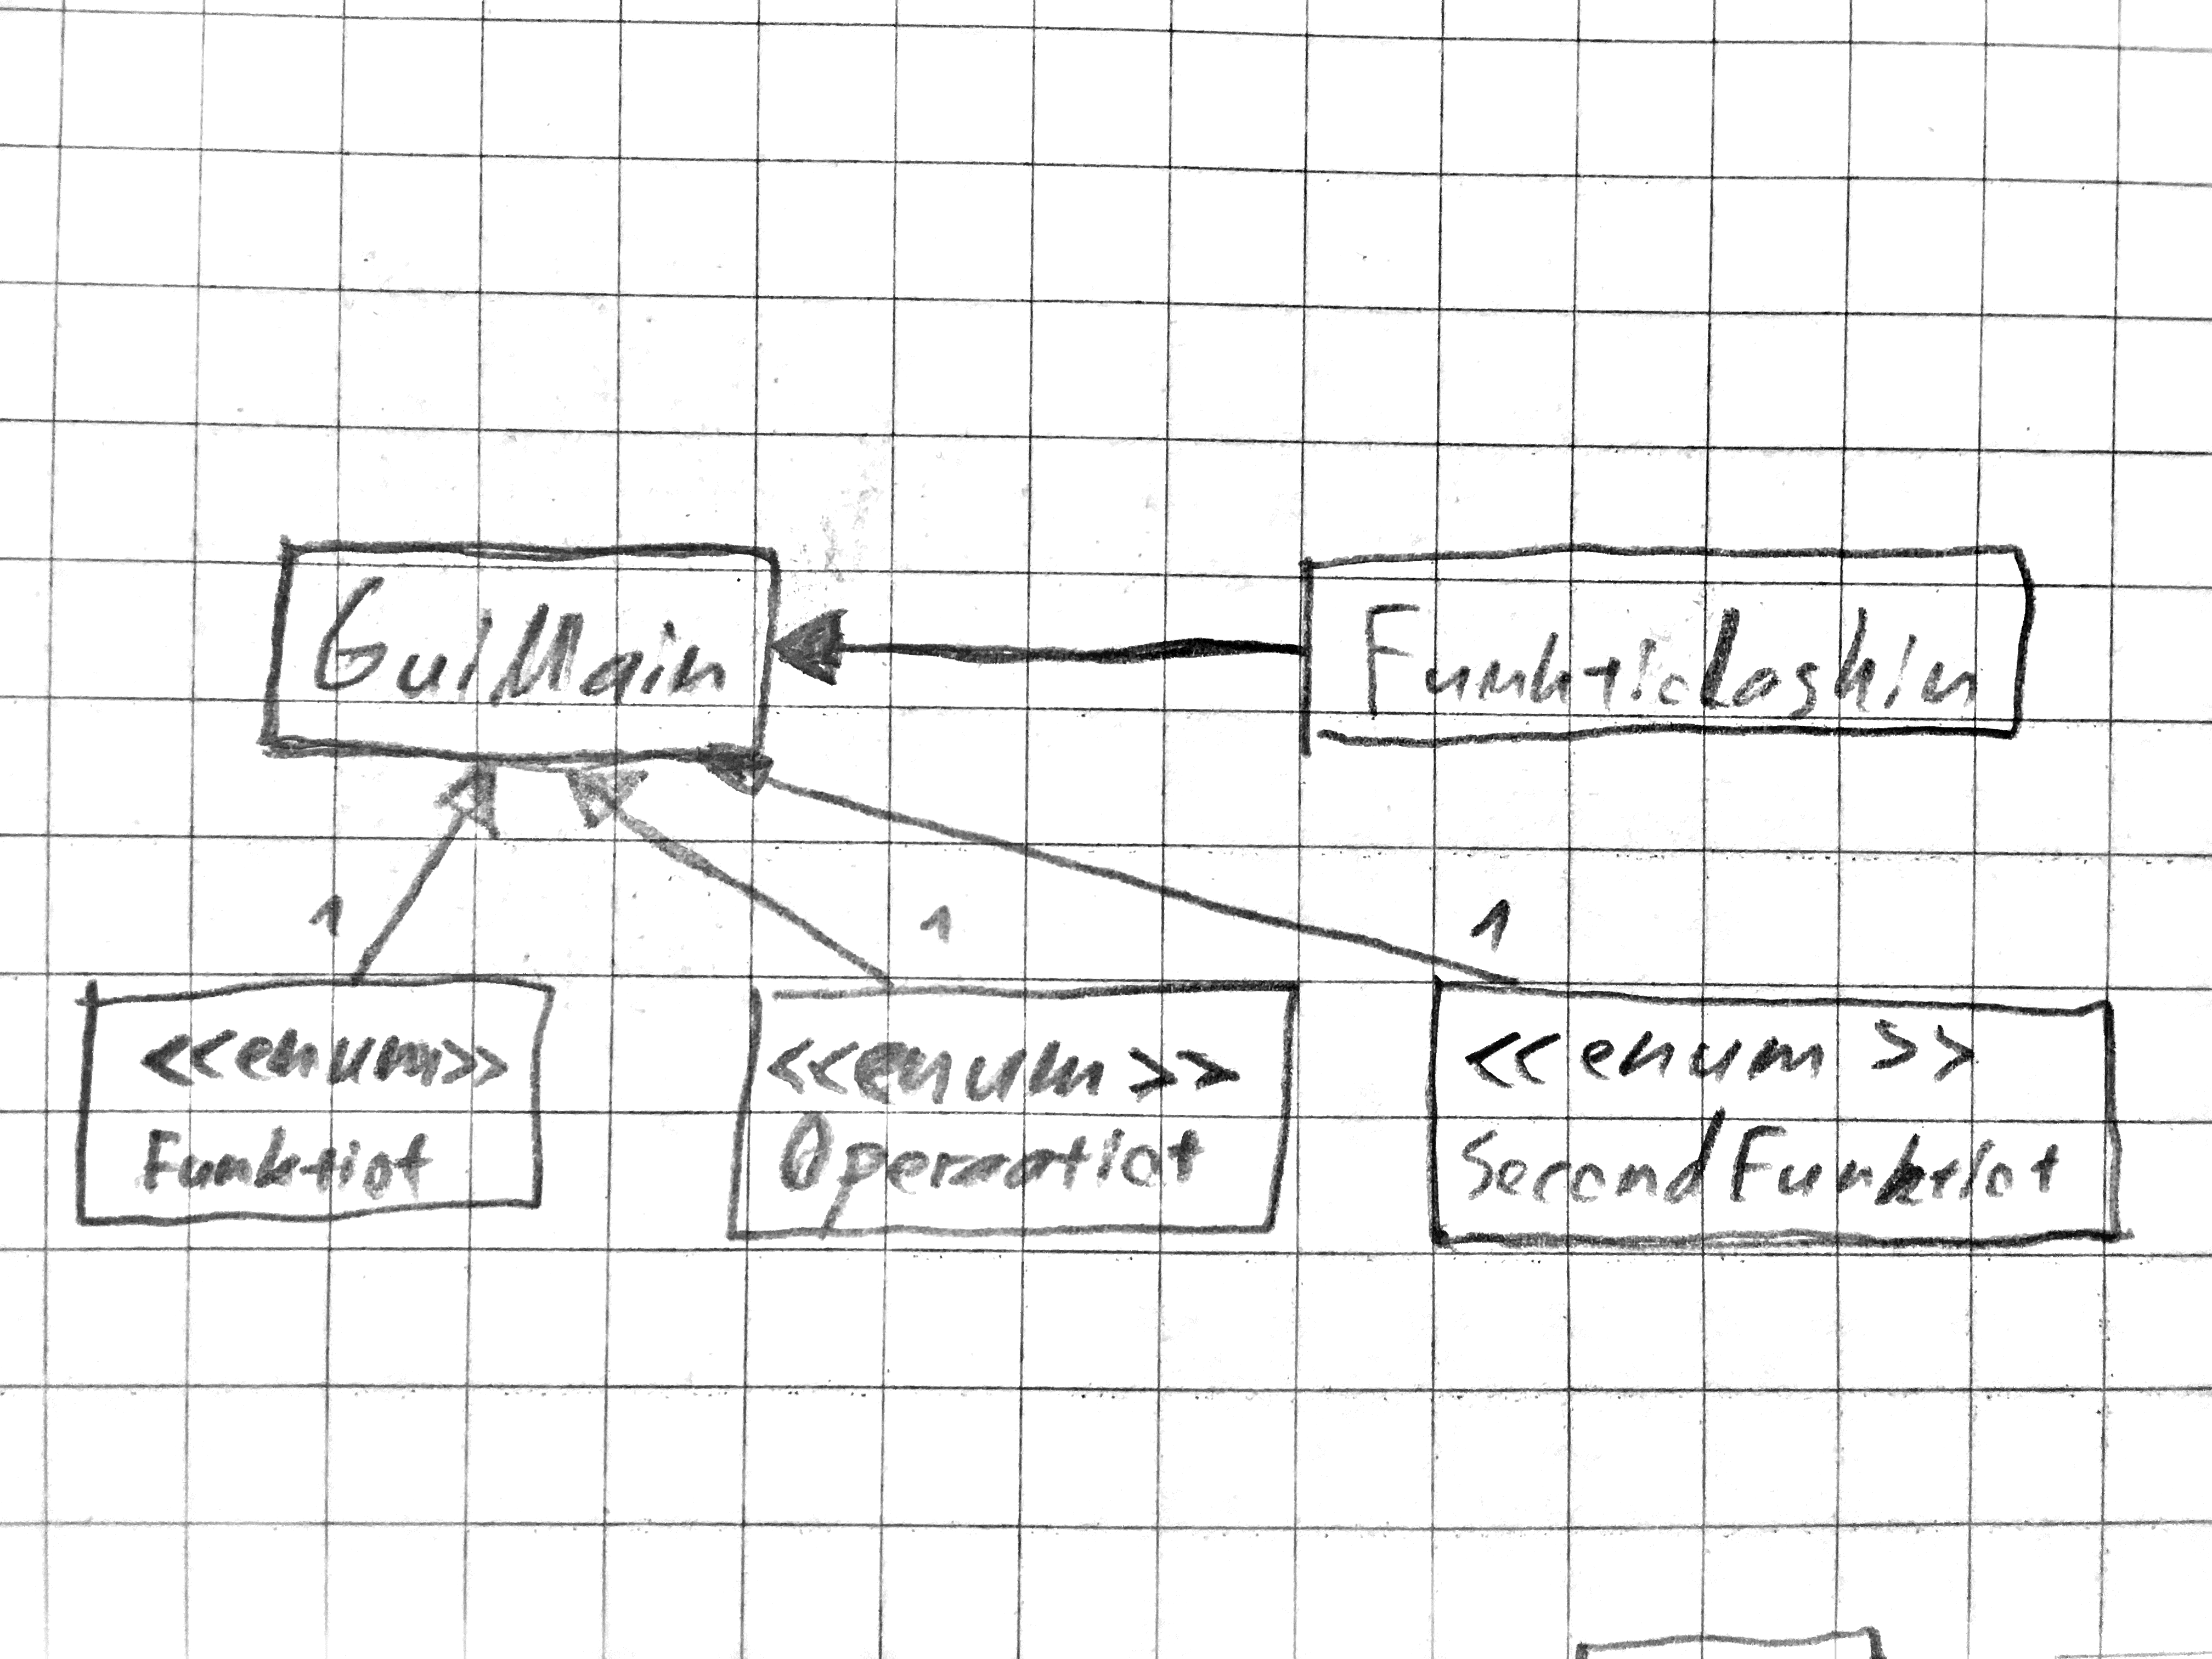 GuiMain
FunktioLaskin
1
1
1
<<enum>>
Funktiot
<<enum>>
Operaatiot
<<enum>>
SecondFunktiot